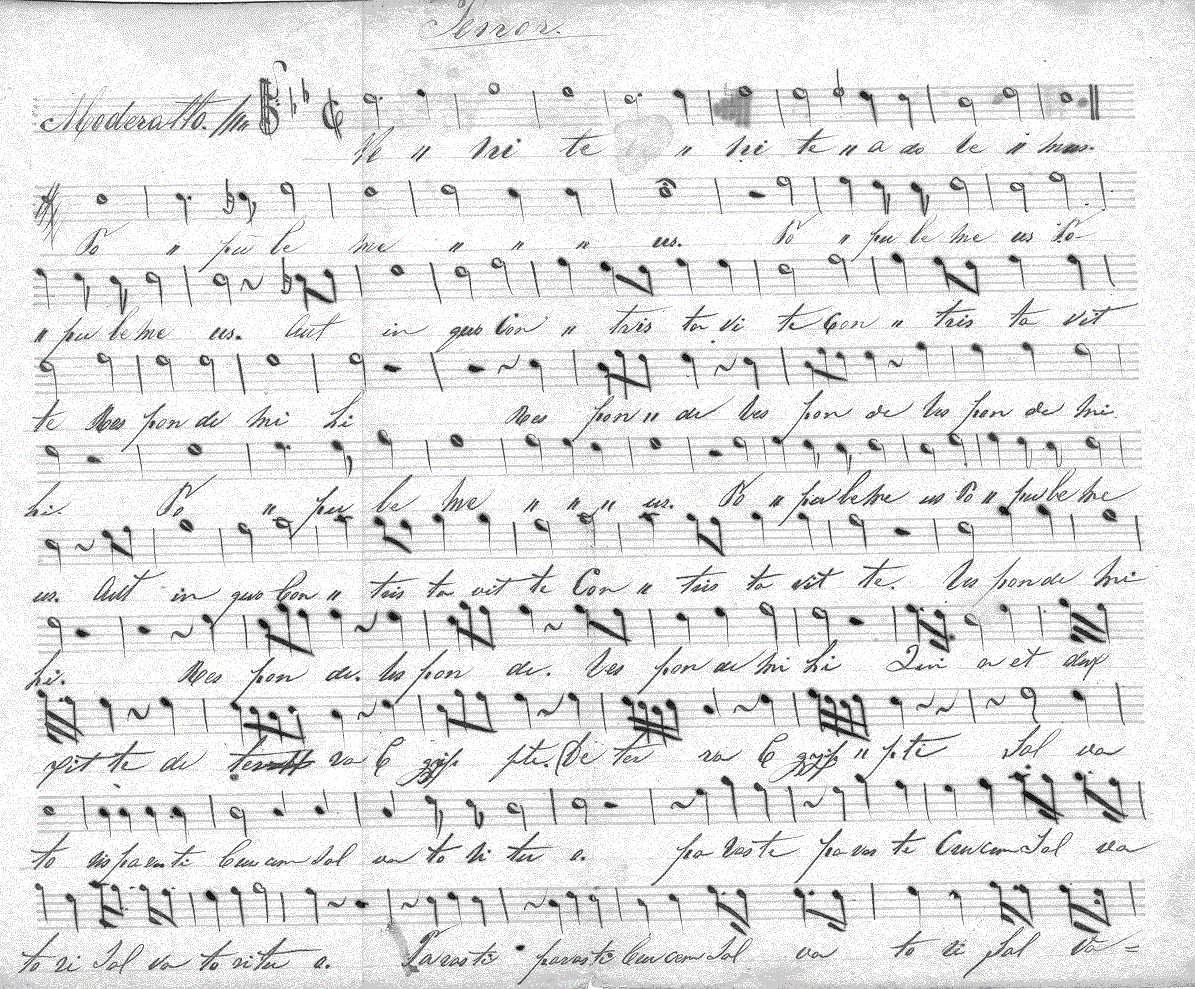 Tenor.
Moderatto.
Ve " ni te " ni te " a do re " mus.
Po " pu le me " " " us. Po " pu le me us Po
" pu le me us. Aut in quo Con " tris ta vi te Con " tris ta vit
te Res pon de mi hi Res pon " de Res pon de Res pon de mi
hi. Po " pu le me " " " us. Po " pu le me us Po " pu le me
us. Aut in quo Con " tris ta vit te Con " tris ta vit te. Res pon de mi
hi. Res pon de. Res pon de. Res pon de mi hi Qui a et dux
xit te de ra E gip pte. De ter ra E gip " pte Sal va
to ris parasti Crucem Sal va to ri tu o. pa raste paras te Crucem Sal va
to ri Sal va to ri tu o. Parasti parasti Crucem Sal va to ri Sal va =